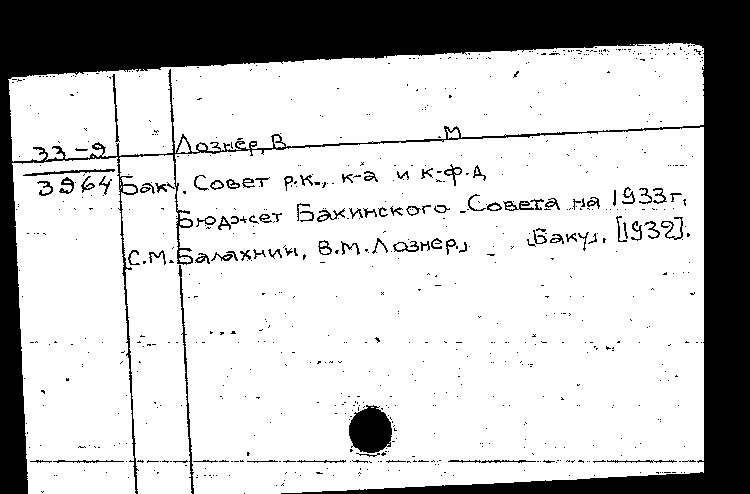 33-9 Лознер, В М
3964 Баку. Совет р.к., к-а и к-ф.д,
Бюджет Бакинского Совета на 1933г.
[С.М.Балахнин, В.М.Лознер] [Баку], [1932].